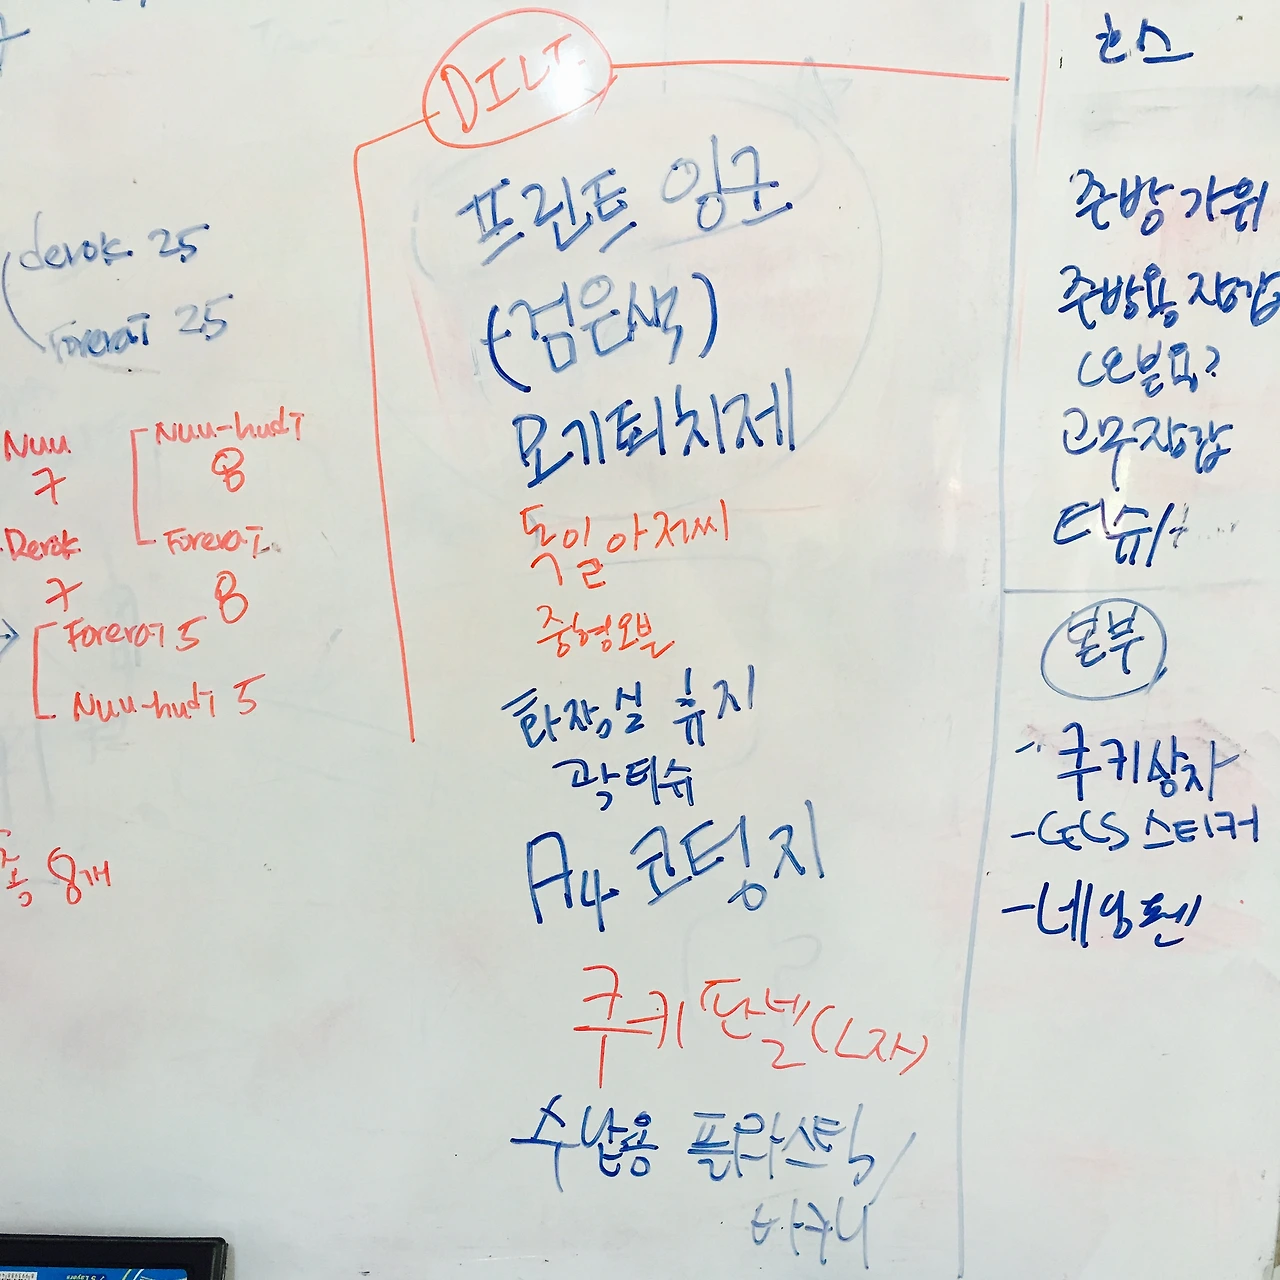 derok 25
Forerai 25
Nuu
7
Derok
7
Nuu-hudi
8
Forerai
8
Forerai 5
Nuu-hudi 5
총 8개
DILI.
프린트 잉크
(검은색)
모기퇴치제
독일아저씨
중형오븐
화장실 휴지
곽티슈
A4 코팅지
쿠키 판넬(L자)
수납용 플라스틱
바구니
호스
주방가위
주방용 장갑
(오븐용?
고무장갑
티슈/
본부
쿠키상자
-GCS 스티커
-네임펜